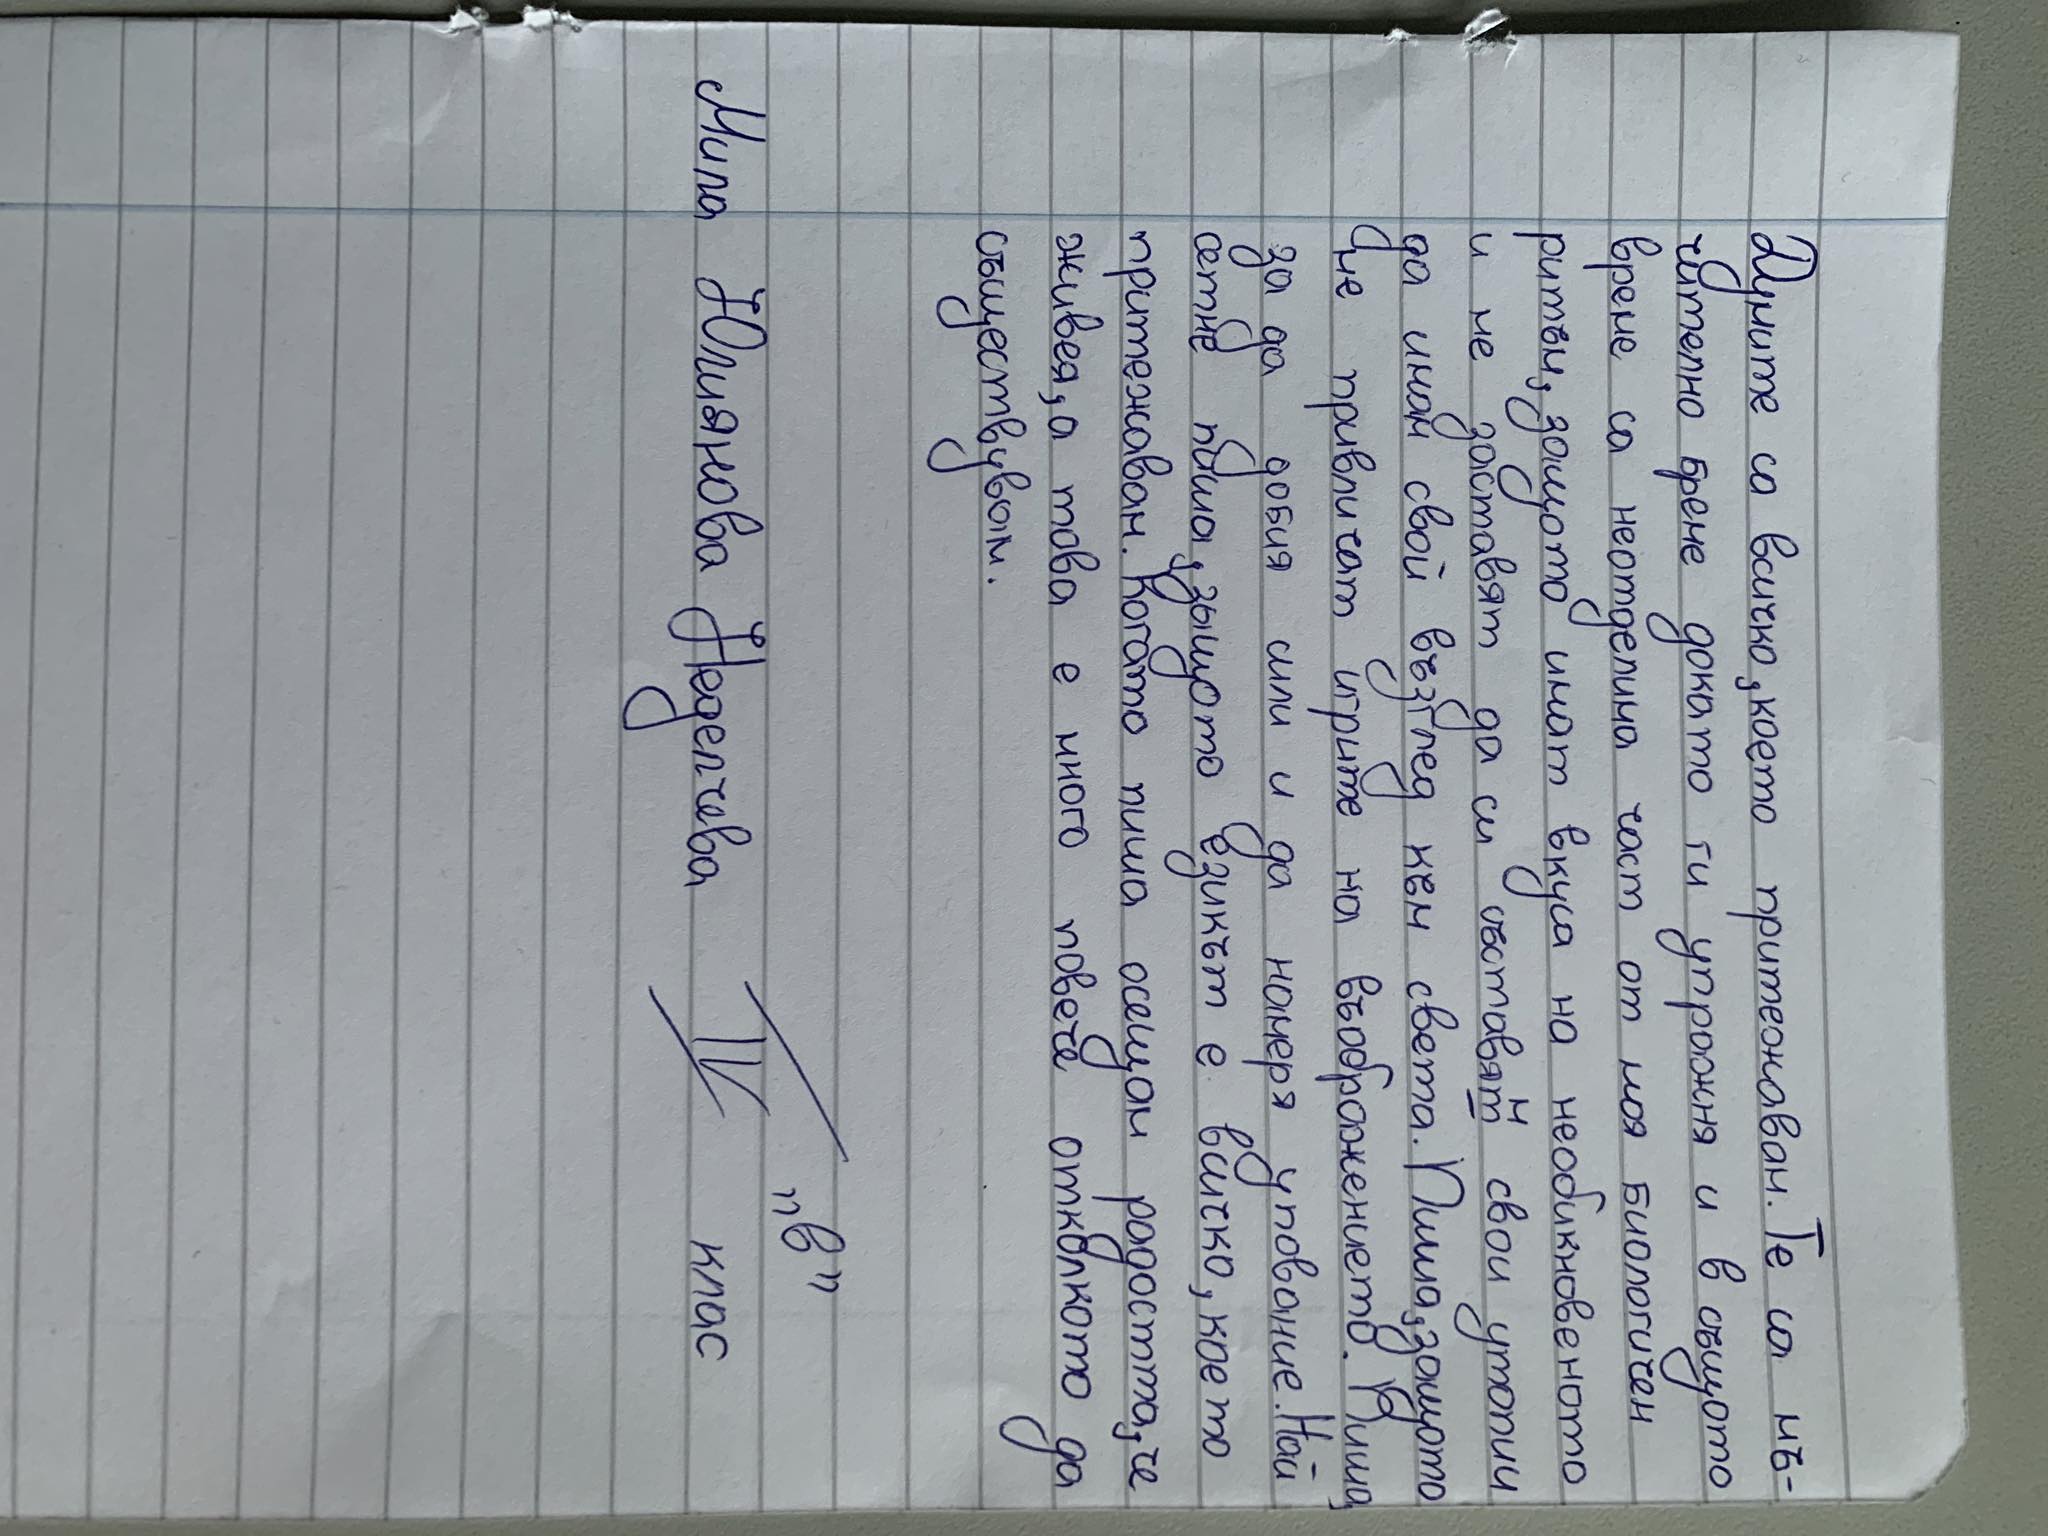 Думите са всичко, което притежавам. Те са мъ-
чително бреме докато ги упражня и в същото
време са неотделима част от моя биологичен
ритъм, защото имат вкуса на необикновеното
и ме заставят да си съставям свои утопии
да имам свой възглед кем света. Пиша, защото
ме привличат игрите на въображението. Пиша,
за да добия сили и да намеря упование. Най
сетне пиша, защото езикът е всичко, което
притежавам. Когато пиша осещам радостта, че
живея, а това е много повече отколкото да
съществувам.
Мила Юлиянова Неделчева IV "в" клас